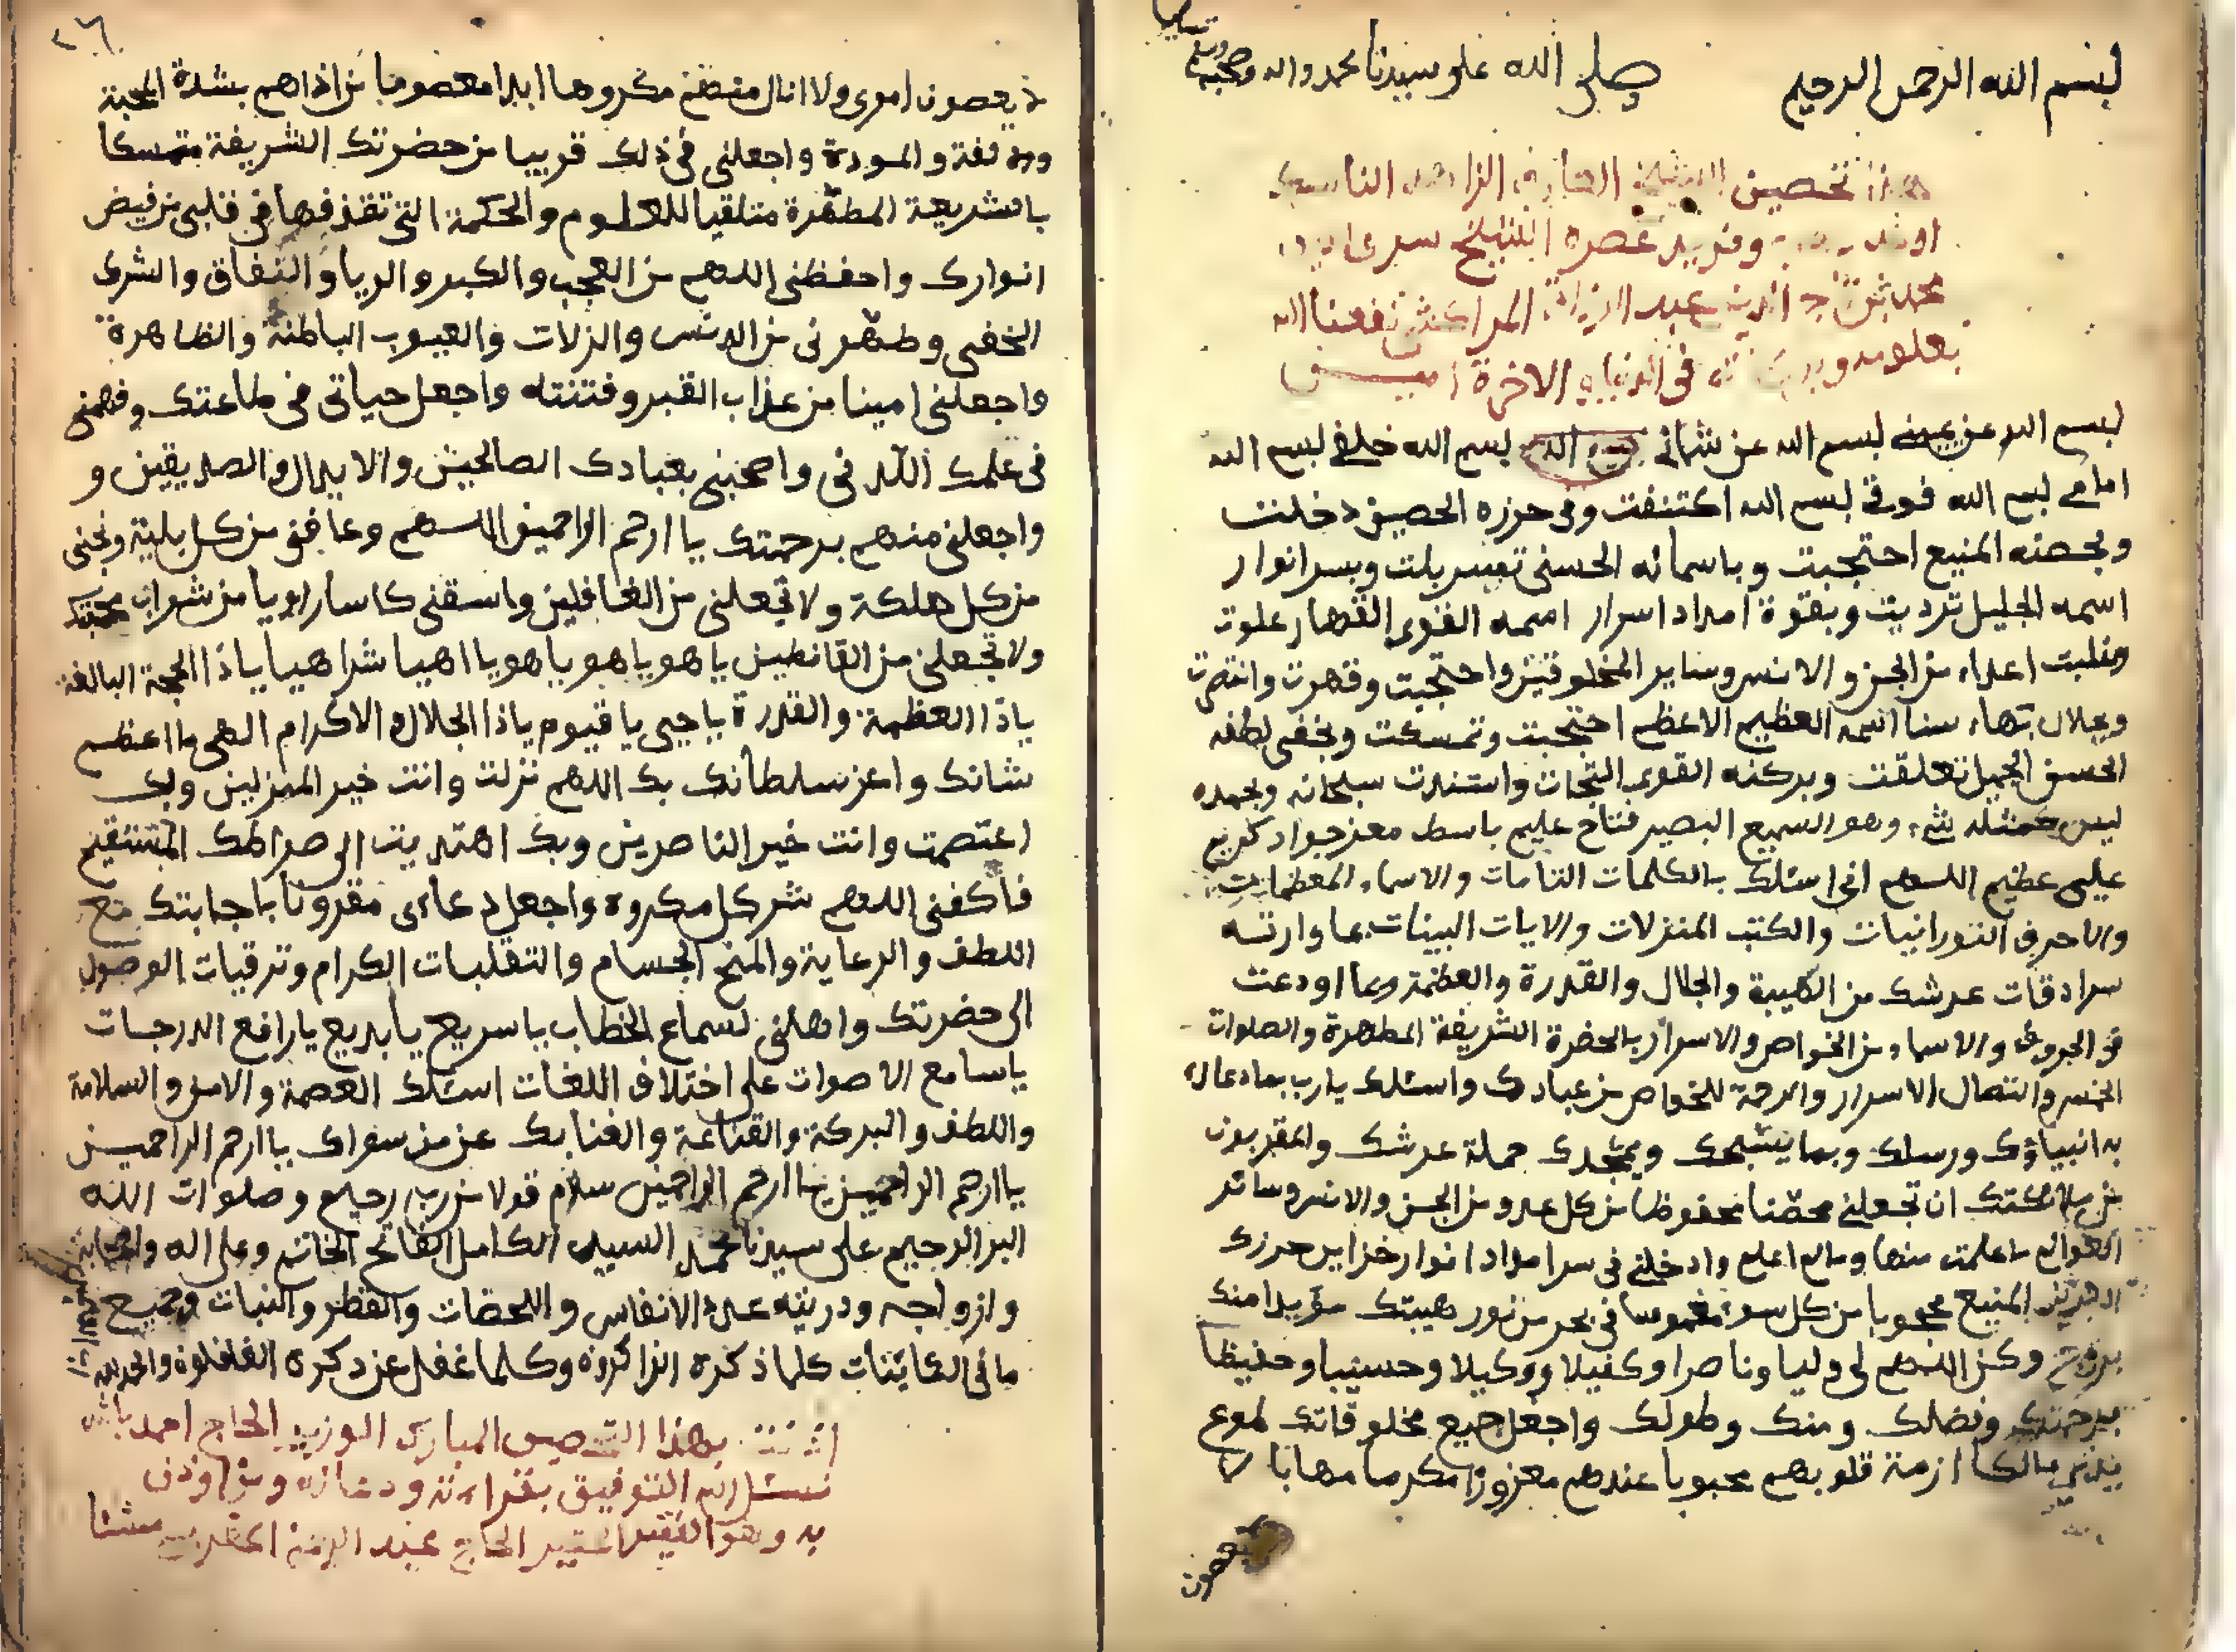 بسم الله الرحمن الرحيم صلى الله على سيدنا محمد واله وصحبه وسلم
هذا تحصين الشيخ العارف الزاهد الناسك
وفريد عصره الشيخ سيدى
محمد بن عبد المراكشى نفعنا الله
بعلومه وبركاته فى الدنيا والاخرة امين
بسم الله عن يمينى بسم الله عن شمالى بسم الله خلفى بسم الله
امامى بسم الله فوقى بسم الله اكتنفت وفى حرزه الحصين دخلت
وبحصنه المنيع احتجبت وباسمائه الحسنى تسربلت وبسر انوار
اسمه الجليل ترديت وبقوة امداد اسرار اسمه القوى القهار علوت
وغلبت اعداء من الجن والانس وساير المخلوقين واحتجبت وقهرت وانتصرت
وبجلال بهاء سنا اسمه العظيم الاعظم احتجبت وتمسكت وبخفى لطفه
الحسن الجميل تعلقت وبركنه القوى التجات واستندت سبحانه وبحمده
ليس كمثله شىء وهو السميع البصير فتاح عليم باسط معز جواد كريم
على عظيم اللهم انى اسئلك بالكلمات التامات والاسماء المعظمات
والاحرف النورانيات والكتب المنزلات والايات البينات بما وارته
سرادقات عرشك من الهيبة والجلال والقدرة والعظمة وبما اودعت
فى الحروف والاسماء من الخواص والاسرار بالحضرة الشريفة المطهرة والصلوات
الخمس واتصال الاسرار والرحمة للخواص من عبادك واسئلك يارب بما دعاك
به انبياؤك ورسلك وبما يسبحك ويمجدك حملة عرشك والمقربون
من ملائكتك ان تجعلنى محصنا محفوظا من كل عدو من الجن والانس وسائر
العوالم ما علمت منها وما لم اعلم وادخلنى فى سر امداد انوار خزاين حرزك
المنيع محجوبا من كل سوء مغموسا فى بحر من نور هيبتك مؤيدا منك
بروح وكن اللهم لى وليا وناصرا وكفيلا ووكيلا وحسيبا وحفيظا
برحمتك وفضلك ومنك وطولك واجعل جميع مخلوقاتك طوع
يدى مالكا ازمة قلوبهم محبوبا عندهم معزوزا مكرما مهابا لا
يعصون
٢٦
لا يعصون امرى ولا انال منهم مكروها ابدا معصوما من اذاهم بشدة المحبة
والالفة والمودة واجعلنى فى ذلك قريبا من حضرتك الشريفة متمسكا
بالشريعة المطهرة متلقيا للعلوم والحكمة التى تقذفها فى قلبى من فيض
انوارك واحفظنى اللهم من العجب والكبر والريا والنفاق والشرك
الخفى وطهرنى من الدنس والزلات والعيوب الباطنة والظاهرة
واجعلنى امينا من عذاب القبر وفتنته واجعل حياتى فى طاعتك وفهمنى
فى علمك اللدنى واصحبنى بعبادك الصالحين والابدال والصديقين و
واجعلنى منهم برحمتك يا ارحم الراحمين اللهم وعافنى من كل بلية ونجنى
من كل هلكة ولا تجعلنى من الغافلين واسقنى كاسا راويا من شراب محبتك
ولا تجعلنى من القانطين يا هو يا هو يا هو يا اهيا شراهيا يا ذا الحجة البالغة
يا ذا العظمة والقدرة يا حى يا قيوم يا ذا الجلال والاكرام الهى ما اعظم
شانك واعز سلطانك بك اللهم نزلت وانت خير المنزلين وبك
اعتصمت وانت خير الناصرين وبك اهتديت الى صراطك المستقيم
فاكفنى اللهم شر كل مكروه واجعل دعاءى مقرونا باجابتك مع
اللطف والرعاية والمنح الجسام والتقلبات الكرام وترقيات الوصول
الى حضرتك واهلنى لسماع الخطاب يا سريع يا بديع يا رافع الدرجات
يا سامع الاصوات على اختلاف اللغات اسئلك العصمة والامن والسلامة
واللطف والبركة والقناعة والغنا بك عن من سواك يا ارحم الراحمين
يا ارحم الراحمين يا ارحم الراحمين سلام قولا من رب رحيم وصلوات الله
البر الرحيم على سيدنا محمد السيد الكامل الفاتح الخاتم وعلى اله واصحابه
وازواجه وذريته عدد الانفاس واللحظات والقطر والنبات وجميع
ما فى الكاينات كلما ذكره الذاكرون وكلما غفل عن ذكره الغافلون والحمد لله
بهذا التحصين المبارك الوزير الحاج احمد باشا
نسئل الله التوفيق بقراءته
به وهو الفقير الحقير الحاج عبد الرحمن